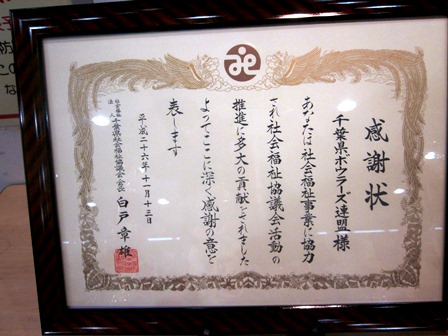 感謝状
千葉県ボウラーズ連盟 様
あなたは社会福祉事業に協力
され社会福祉協議会活動の
推進に多大の貢献をされました
よってここに深く感謝の意を
表します
平成二十六年十一月十三日
社会福祉法人 千葉県社会福祉協議会会長 白戸章雄